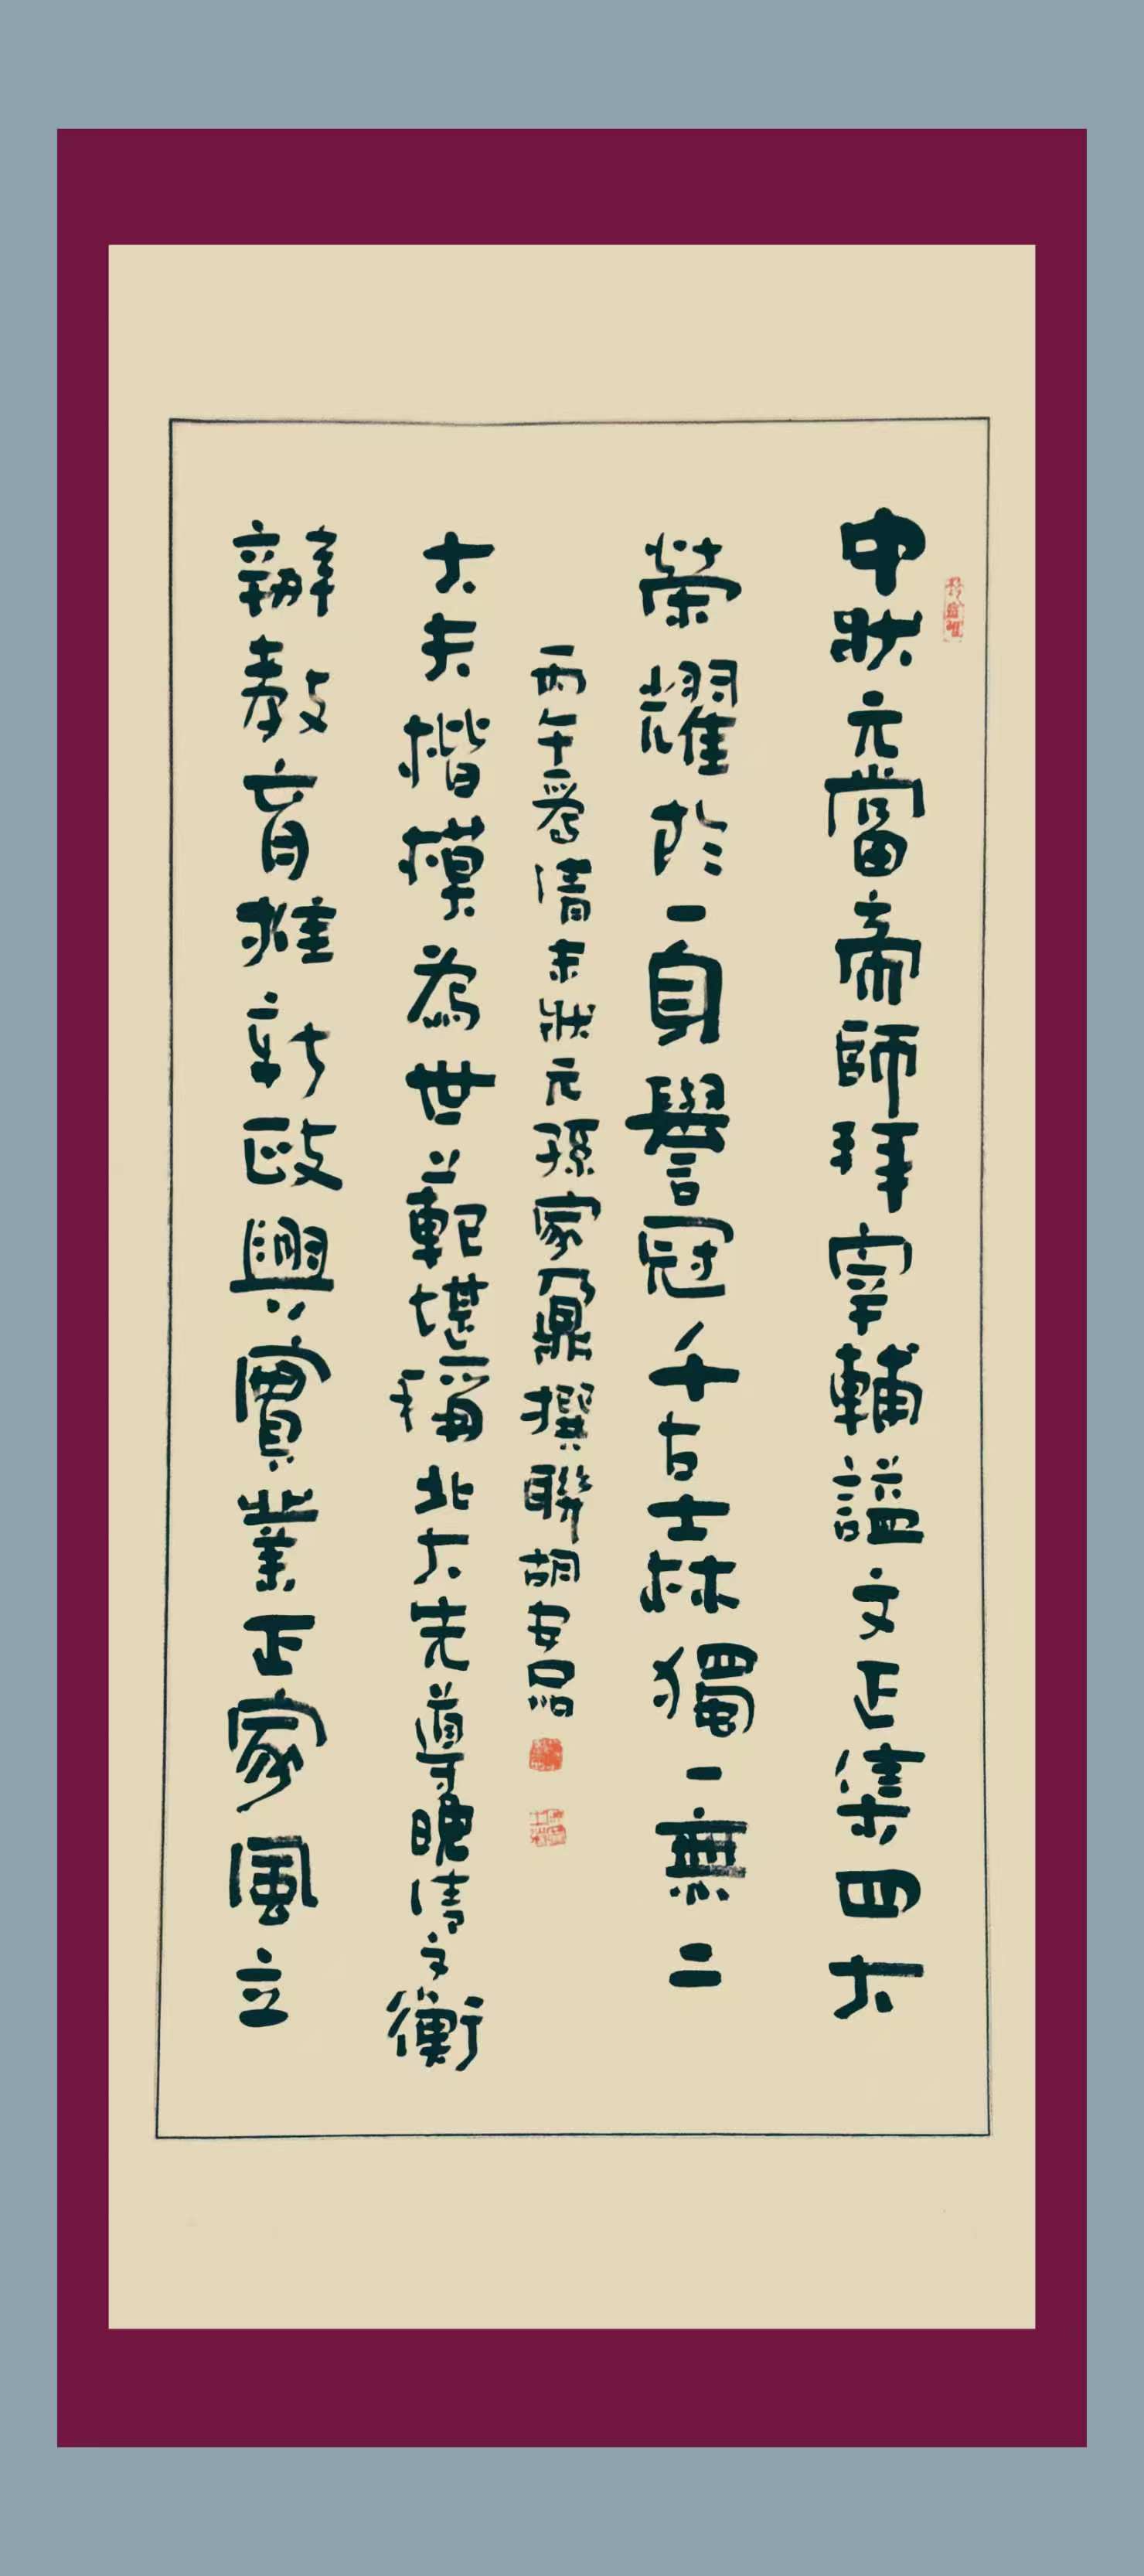 中狀元當帝師拜宰輔謚文正集四大
榮耀於一身譽冠千古士林獨一無二
辦教育推新政興實業正家風立
大夫楷模為世範堪稱北大先導晚清文衡
丙午爲清末狀元孫家鼐撰聯胡安品